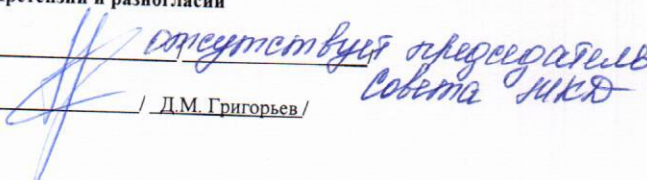 претензий и разногласий
отсутствует председатель
совета МКД
/ Д.М. Григорьев /